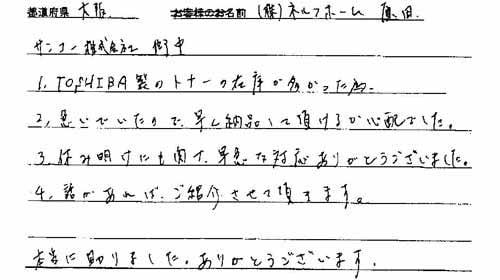 都道府県 大阪 お客様のお名前 (株)ネルフホーム 原田
サンコー株式会社 御中
1. TOSHIBA製のトナーの在庫が多かった為。
2, 急いでいたので、早く納品して頂けるか心配でした。
3. 休み明けにも関ず、早急な対応ありがとうございました。
4. 話があれば、ご紹介させて頂きます。
本当に助りました。ありがとうございます。